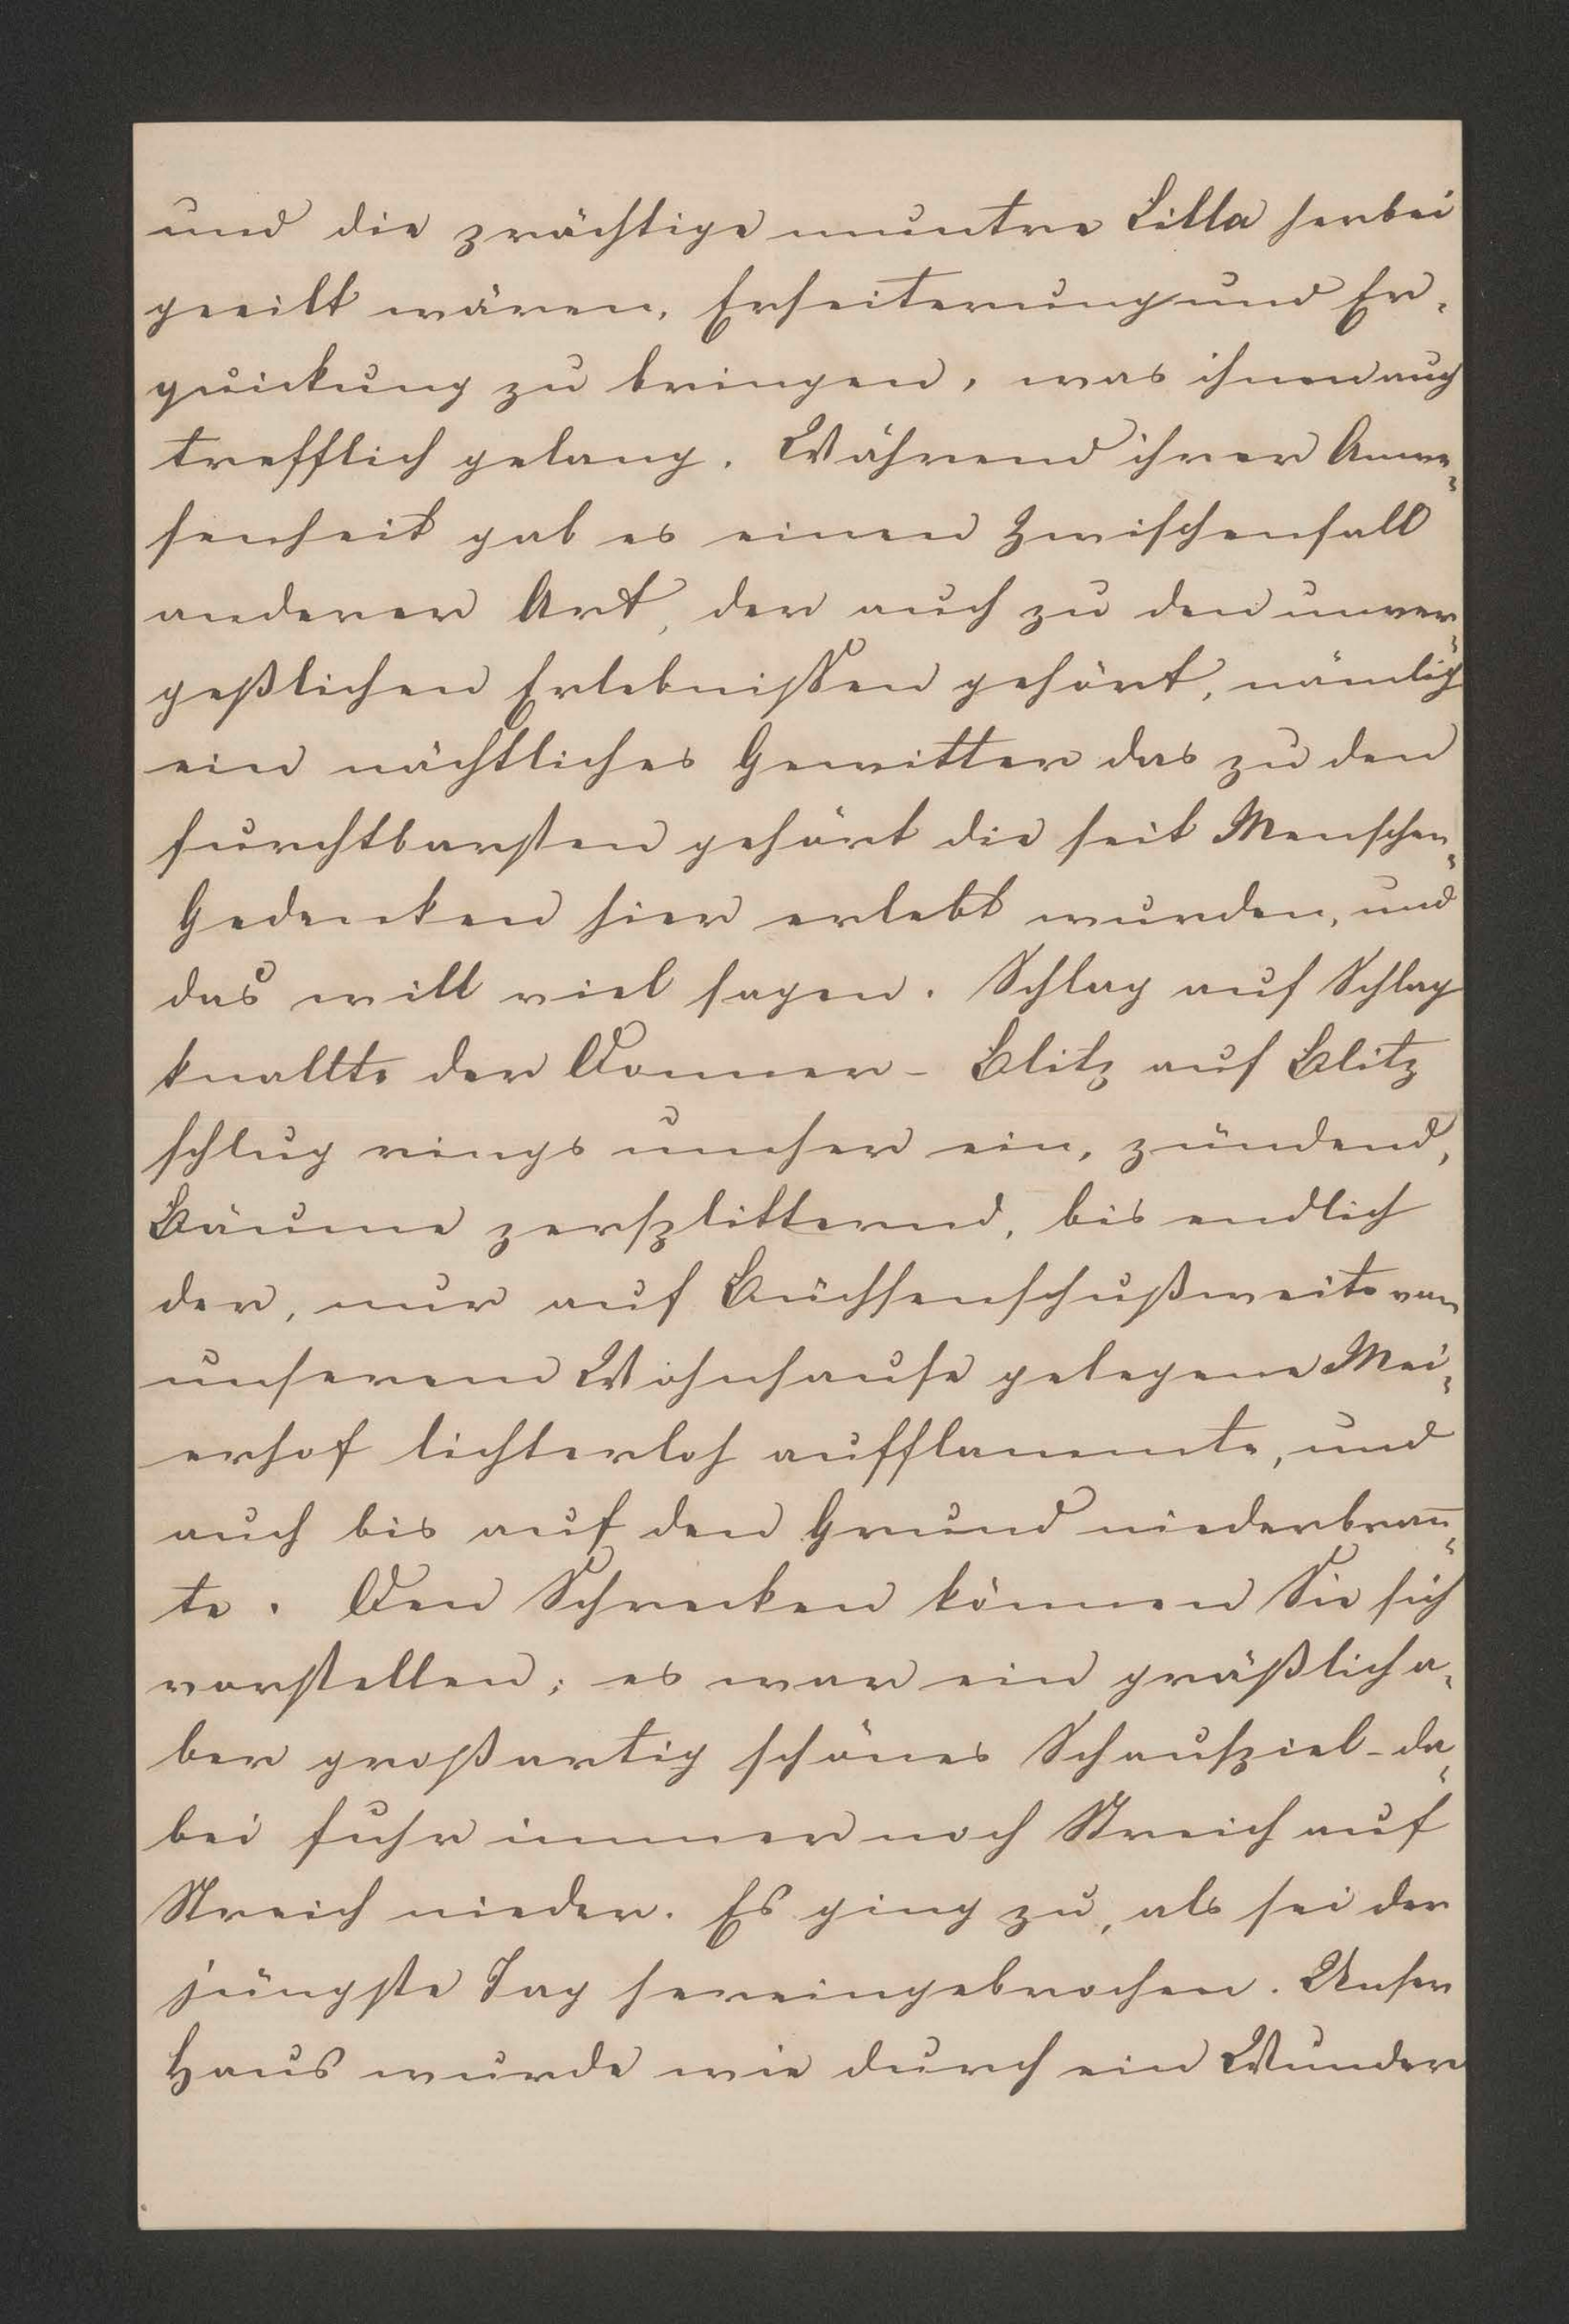 und die prächtige muntre Lilla herbei
geeilt wären, Erheiterung und Er-
quickung zu bringen, was ihnen auch
trefflich gelang. Während ihrer Anwe-
senheit gab es einen Zwischenfall
anderer Art, der auch zu den unver-
geßlichen Erlebnissen gehört, nämlich
ein nächtliches Gewitter das zu den
furchtbarsten gehört die seit Menschen-
Gedenken hier erlebt wurden, und
das will viel sagen. Schlag auf Schlag
knallte der Donner - Blitz auf Blitz
schlug rings umher ein, zündend,
Bäume zersplitternd, bis endlich
der, nur auf Büchsenschußweite von
unserem Wohnhause gelegene Mei-
erhof lichterloh aufflammte, und
auch bis auf den Grund niederbran̅-
te. Den Schrecken können Sie sich
vorstellen; es war ein gräßlich a-
ber großartig schönes Schauspiel - da-
bei fuhr immer noch Streich auf
Streich nieder. Es ging zu, als sei der
jüngste Tag hereingebrochen. Unser
Haus wurde wie durch ein Wunder